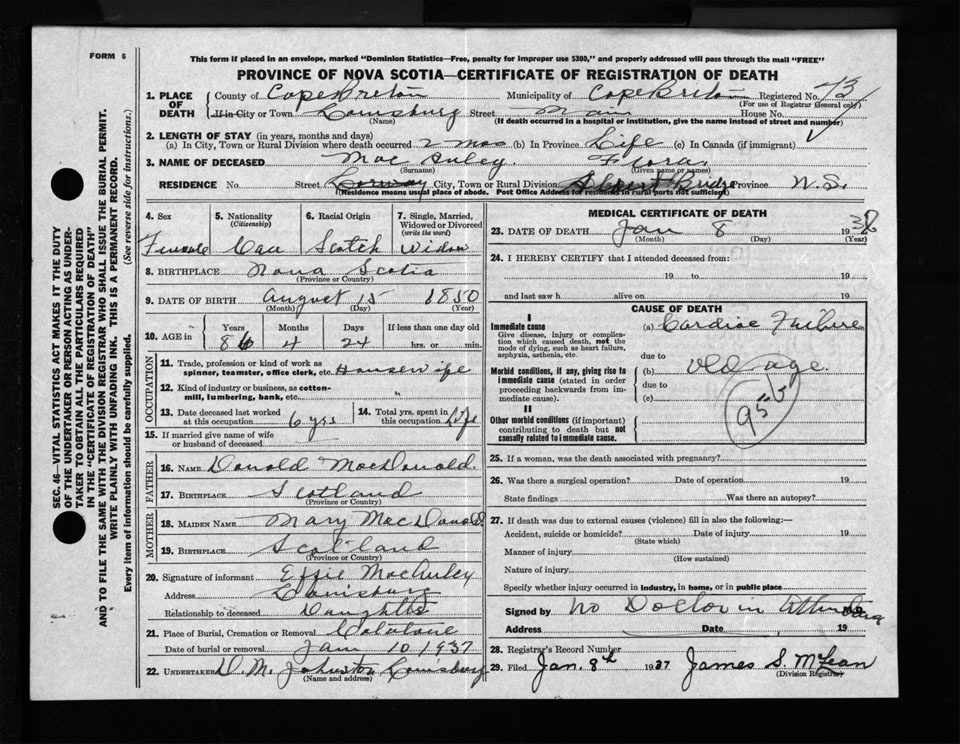 FORM 6
This form if placed in an envelope, marked "Dominion Statistics—Free, penalty for improper use $300," and properly addressed will pass through the mail "FREE"
PROVINCE OF NOVA SCOTIA—CERTIFICATE OF REGISTRATION OF DEATH
SEC. 46—VITAL STATISTICS ACT MAKES IT THE DUTY
OF THE UNDERTAKER OR PERSON ACTING AS UNDER-
TAKER TO OBTAIN ALL THE PARTICULARS REQUIRED
IN THE "CERTIFICATE OF REGISTRATION OF DEATH"
AND TO FILE THE SAME WITH THE DIVISION REGISTRAR WHO SHALL ISSUE THE BURIAL PERMIT.
WRITE PLAINLY WITH UNFADING INK. THIS IS A PERMANENT RECORD.
Every item of information should be carefully supplied. (See reverse side for instructions.)
1. PLACE OF DEATH County of Cape Breton Municipality of Cape Breton Registered No. 73
(For use of Registrar General only)
If in City or Town Louisburg Street Main House No.
(Name) (If death occurred in a hospital or institution, give the name instead of street and number)
2. LENGTH OF STAY (in years, months and days)
(a) In City, Town or Rural Division where death occurred 2 mos (b) In Province Life (c) In Canada (if immigrant)
3. NAME OF DECEASED Mac Auley, Flora
(Surname) (Given name or names)
RESIDENCE No. Street City, Town or Rural Division Albert Bridge Province N.S.
(Residence means usual place of abode. Post Office Address for residents in rural parts not sufficient)
4. Sex
Female
5. Nationality
(Citizenship)
Can
6. Racial Origin
Scotch
7. Single, Married,
Widowed or Divorced
(write the word)
Widow
8. BIRTHPLACE Nova Scotia
(Province or Country)
9. DATE OF BIRTH August 15 1850
(Month) (Day) (Year)
10. AGE in Years Months Days If less than one day old
86 4 24 hrs. or min.
OCCUPATION
11. Trade, profession or kind of work as
spinner, teamster, office clerk, etc. Housewife
12. Kind of industry or business, as cotton-
mill, lumbering, bank, etc. "
13. Date deceased last worked
at this occupation 6 yrs
14. Total yrs. spent in
this occupation Life
15. If married give name of wife
or husband of deceased
FATHER
16. NAME Donald MacDonald.
17. BIRTHPLACE Scotland
(Province or Country)
MOTHER
18. MAIDEN NAME Mary MacDonald.
19. BIRTHPLACE Scotland
(Province or Country)
20. Signature of informant Effie MacAuley
Address Louisburg
Relationship to deceased Daughter
21. Place of Burial, Cremation or Removal
Date of burial or removal Jan 10 1937
22. UNDERTAKER D. M. Johnston Louisburg
(Name and address)
MEDICAL CERTIFICATE OF DEATH
23. DATE OF DEATH Jan 8 193
(Month) (Day) (Year)
24. I HEREBY CERTIFY that I attended deceased from:
19 to 19
and last saw h alive on 19
CAUSE OF DEATH
I
Immediate cause
Give disease, injury or complica-
tion which caused death, not the
mode of dying, such as heart failure,
asphyxia, asthenia, etc.
(a) Cardiac Failure
due to
Morbid conditions, if any, giving rise to
immediate cause (stated in order
proceeding backwards from im-
mediate cause).
(b) Old age
due to
(c)
II
Other morbid conditions (if important)
contributing to death but not
causally related to immediate cause.
25. If a woman, was the death associated with pregnancy?
26. Was there a surgical operation? Date of operation 19
State findings Was there an autopsy?
27. If death was due to external causes (violence) fill in also the following:—
Accident, suicide or homicide? Date of injury 19
(State which)
Manner of injury
(How sustained)
Nature of injury
Specify whether injury occurred in industry, in home, or in public place
Signed by No Doctor in Attendance M.D.
Address Date 19
28. Registrar's Record Number
29. Filed Jan. 8th 1937 James S. McLean
(Division Registrar)